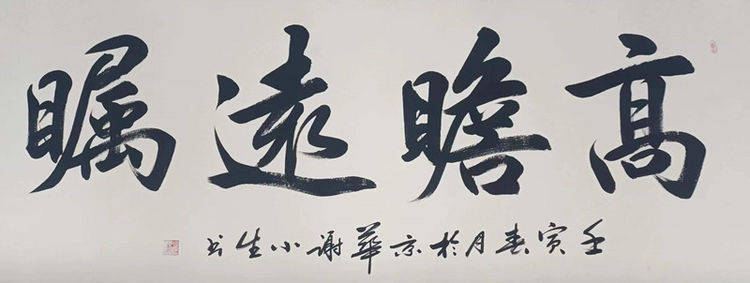 高瞻遠矚
壬寅春月於京華謝小生书